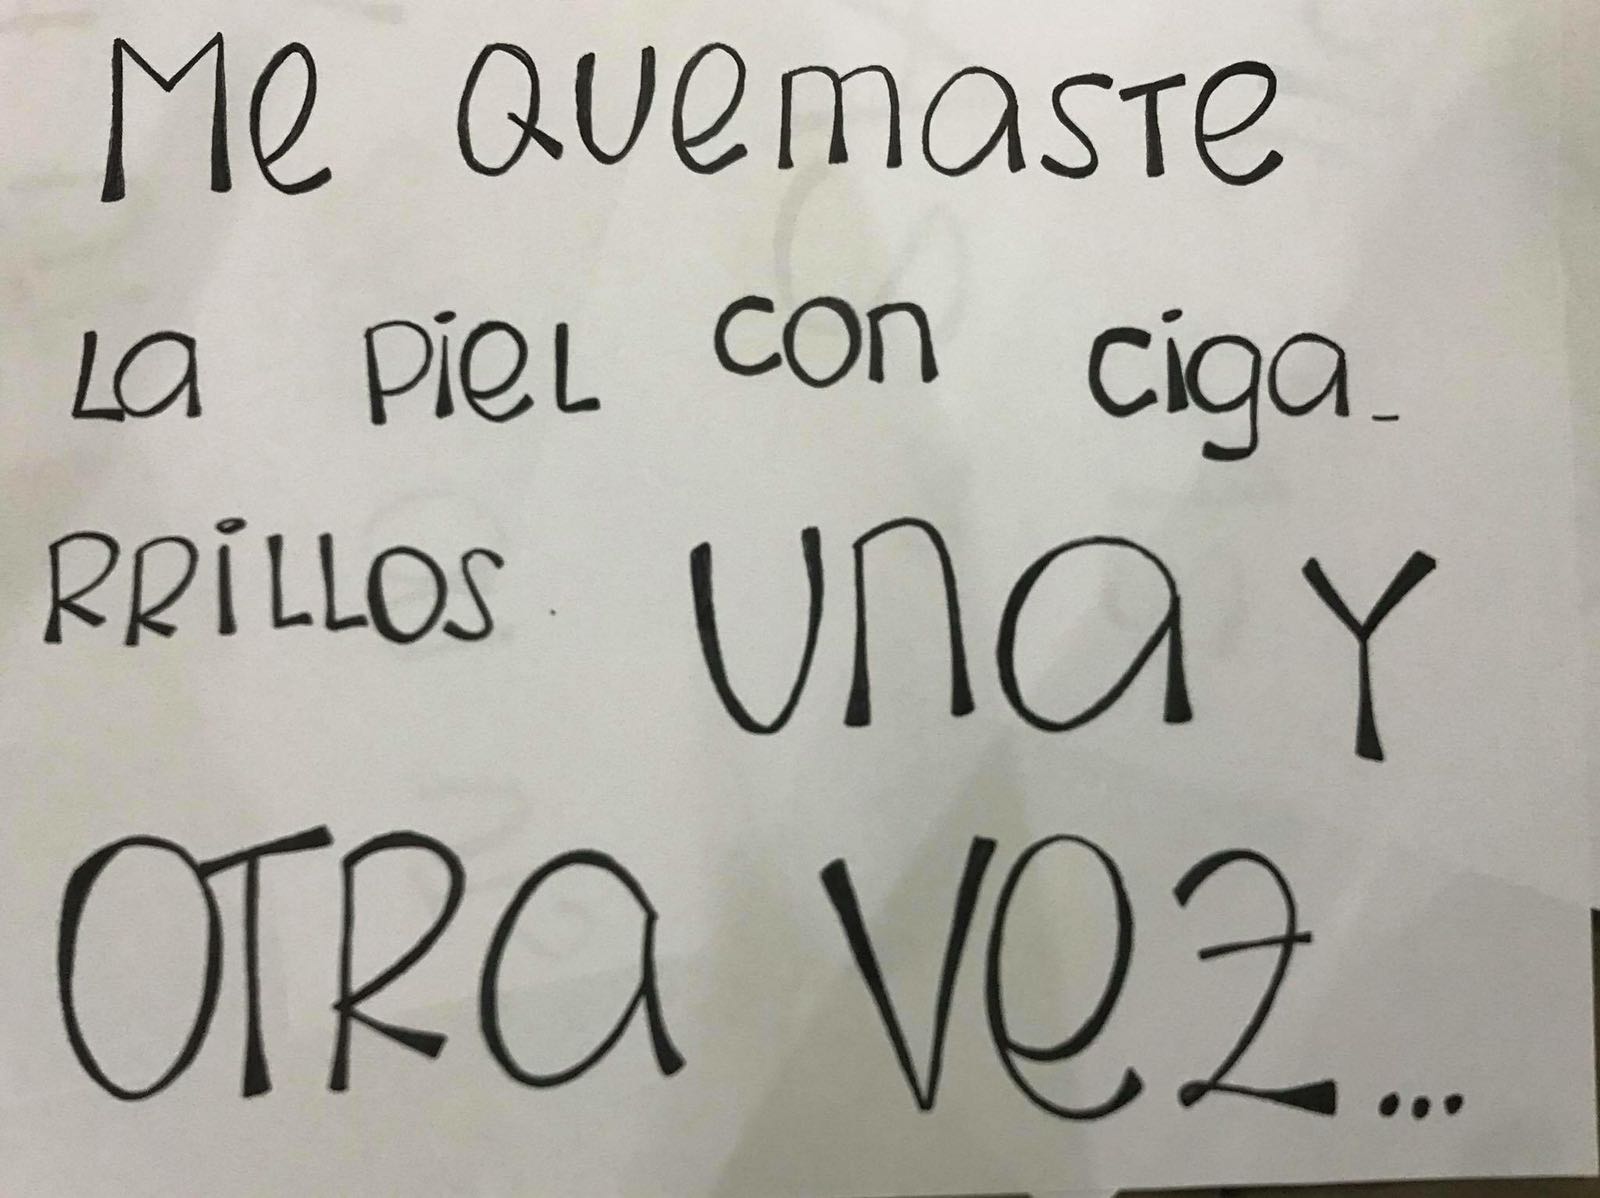 Me QUemaSTe
La PieL con ciga-
RRiLLOS UnaY
OTRa VeZ...